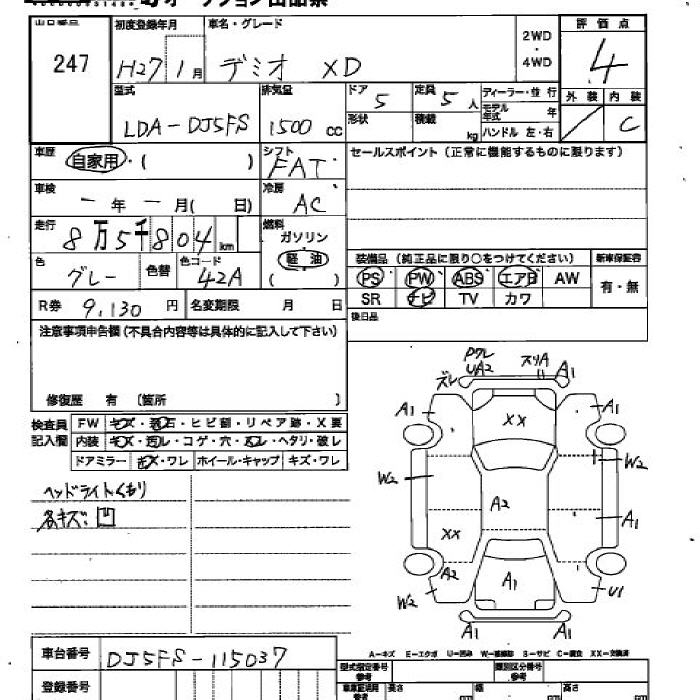 出品番号 初度登録年月 車名・グレード 2WD・4WD 評価点
247 H27 1月 デミオ XD 4
型式 排気量 ドア 5 定員 5人 ディーラー・並行 外装 内装
LDA-DJ5FS 1500cc 形状 積載 kg モデル年式 年 / C
ハンドル 左・右
車歴 自家用・( ) シフト FAT セールスポイント(正常に機能するものに限ります)
車検 ー年ー月( 日) 冷房 AC
走行 8万5千804km 燃料 ガソリン 軽油 ( )
色 グレー 色替 色コード 42A
装備品(純正品に限り○をつけてください) 新車保証書
PS PW ABS エアB AW 有・無
SR ナビ TV カワ
R券 9,130円 名変期限 月 日 後日品
注意事項申告欄(不具合内容等は具体的に記入して下さい)
修復歴 有 〔箇所 〕
検査員記入欄 FW キズ・飛石・ヒビ割・リペア跡・X要
内装 キズ・汚レ・コゲ・穴・スレ・ヘタリ・破レ
ドアミラー キズ・ワレ ホイール・キャップ キズ・ワレ
ヘッドライトくもり
各キズ・凹
Pワレ
UA2 スリA A1
ズレ
A1 XX A1
W2 W2
A2
XX A1
A2 A1
W2 U1
A1
A-キズ E-エクボ U-凹み W-補修跡 S-サビ C-腐食 XX-交換済
車台番号 DJ5FS-115037
型式指定番号 参考 類別区分番号 参考
登録番号 車庫証明用 参考 長さ cm 幅 cm 高さ cm